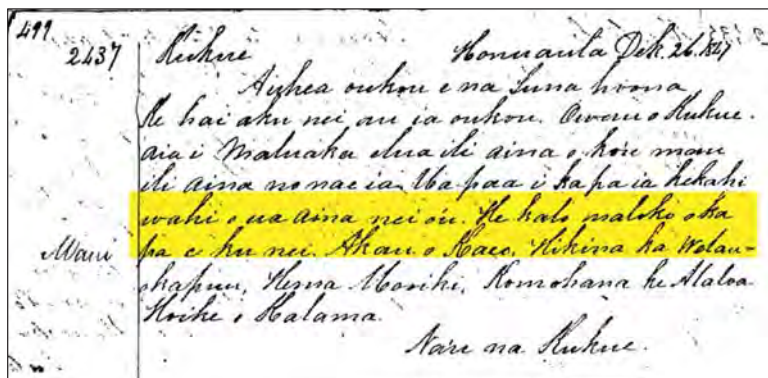 499
2437 Kukue Honuaula Dek. 26. 1847
Auhea oukou e na Luna hoona
Ke hai aku nei au ia oukou. Owau o Kukue.
aia i Maluaka elua ili aina o ko'u mau
ili aina nonae ia. Ua paa i ka pa ia kekahi
wahi o ua aina nei o'u. He kalo maloko o ka
Maui pa e ku nei. Akau o Kaeo, Hikina ka Wolau-
okapuu, Hema Mooiki, Komohana ke Alaloa
Hoike o Halama.
Na'u na Kukue.